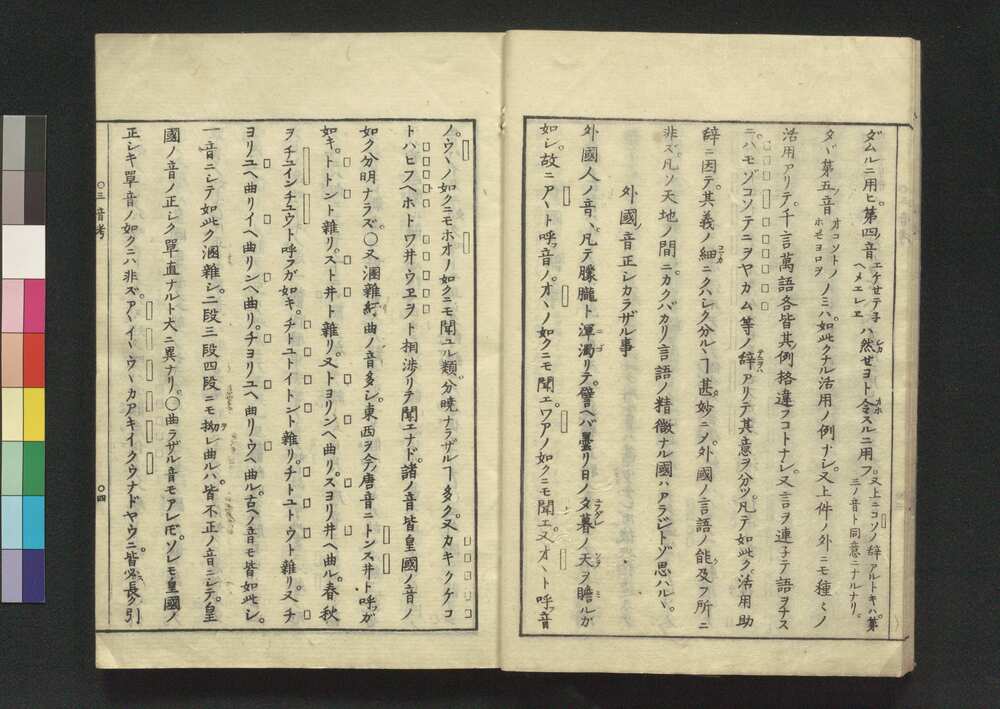 ダムルニ用ヒ。第四ノ音エケセテ子ヘメエレヱハ然セヨト令スルニ用フ。又上ニコソノ辞アルトキハ。第三ノ音ト同意ニナルナリ。
タヾ第五ノ音オコソトノホモヨロヲノミハ。如此クナル活用ノ例ナシ。又上件ノ外ニモ種々ノ
活用アリテ。千言萬語各皆其例格違フコトナシ。又言ヲ連子テ語ヲナス
ニ。ハモゾコソテニヲヤカム等ノ辞アリテ其意ヲ分ツ。凡テ如此ク。活用助
辞ニ因テ。其義ノ細ニクハシク分ルヽヿ甚妙ニ〆。外國ノ言語ノ能及フ所ニ
非ズ。凡ソ天地ノ間ニ。カクバカリ言語ノ精微ナル國ハアラジトゾ思ハルヽ。
外國ノ音正シカラザル事
外國人ノ音ハ。凡テ朦朧ト渾濁リテ。譬ヘバ曇リ日ノ夕暮ノ天ヲ瞻ルガ
如シ。故ニアヽト呼ブ音ノ。オヽノ如クニモ聞エ。ワアノ如クニモ聞エ。又オヽト呼ブ音
ノ。ウヽノ如クニモホオノ如クニモ聞ユル類。分暁ナラザルヿ多ク。又カキクケコ
トハヒフヘホトワ井ウヱヲト相渉リテ聞エナド。諸ノ音皆皇國ノ音ノ
如ク分明ナラズ。〇又溷雜紆曲ノ音多シ。東西ヲ今ノ唐音ニトンスヰト呼ブガ
如キ。トトント雜リ。スト井ト雜リ。又トヨリンヘ曲リ。スヨリ井ヘ曲ル。春秋
ヲチユインチユウト呼フガ如キ。チトユトイトント雜リ。チトユトウト雜リ。又チ
ヨリユヘ曲リイヘ曲リンヘ曲リ。チヨリユヘ曲リウヘ曲ル。古ヘノ音モ皆如此シ。
一音ニシテ如此ク溷雜シ。二段三段四段ニモ拗レ曲ルハ。皆不正ノ音ニシテ。皇
國ノ音ノ正シク單直ナルト大ニ異ナリ。〇曲ラザル音モアレドモ。ソレモ皇國ノ
正シキ單音ノ如クニハ非ズ。アヽイヽウヽカアキイクウナドヤウニ。皆必ズ長ク引
〇三音考
〇四